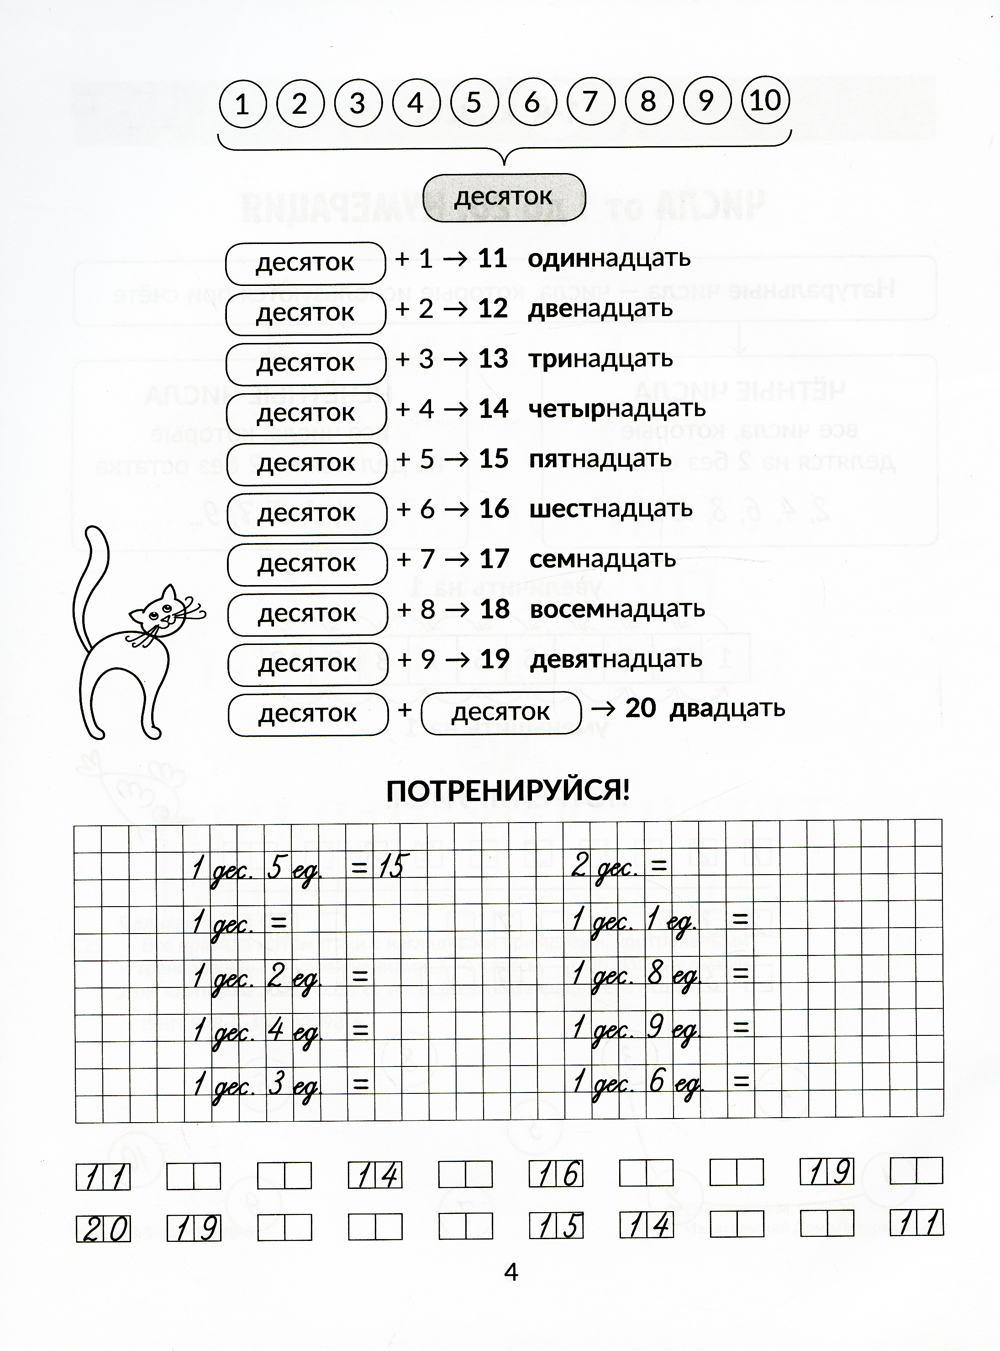 1 2 3 4 5 6 7 8 9 10
десяток
десяток + 1 → 11 одиннадцать
десяток + 2 → 12 двенадцать
десяток + 3 → 13 тринадцать
десяток + 4 → 14 четырнадцать
десяток + 5 → 15 пятнадцать
десяток + 6 → 16 шестнадцать
десяток + 7 → 17 семнадцать
десяток + 8 → 18 восемнадцать
десяток + 9 → 19 девятнадцать
десяток + десяток → 20 двадцать
ПОТРЕНИРУЙСЯ!
1 дес. 5 ед. = 15 2 дес. =
1 дес. = 1 дес. 1 ед. =
1 дес. 2 ед. = 1 дес. 8 ед. =
1 дес. 4 ед. = 1 дес. 9 ед. =
1 дес. 3 ед. = 1 дес. 6 ед. =
11 14 16 19
20 19 15 14 11
4